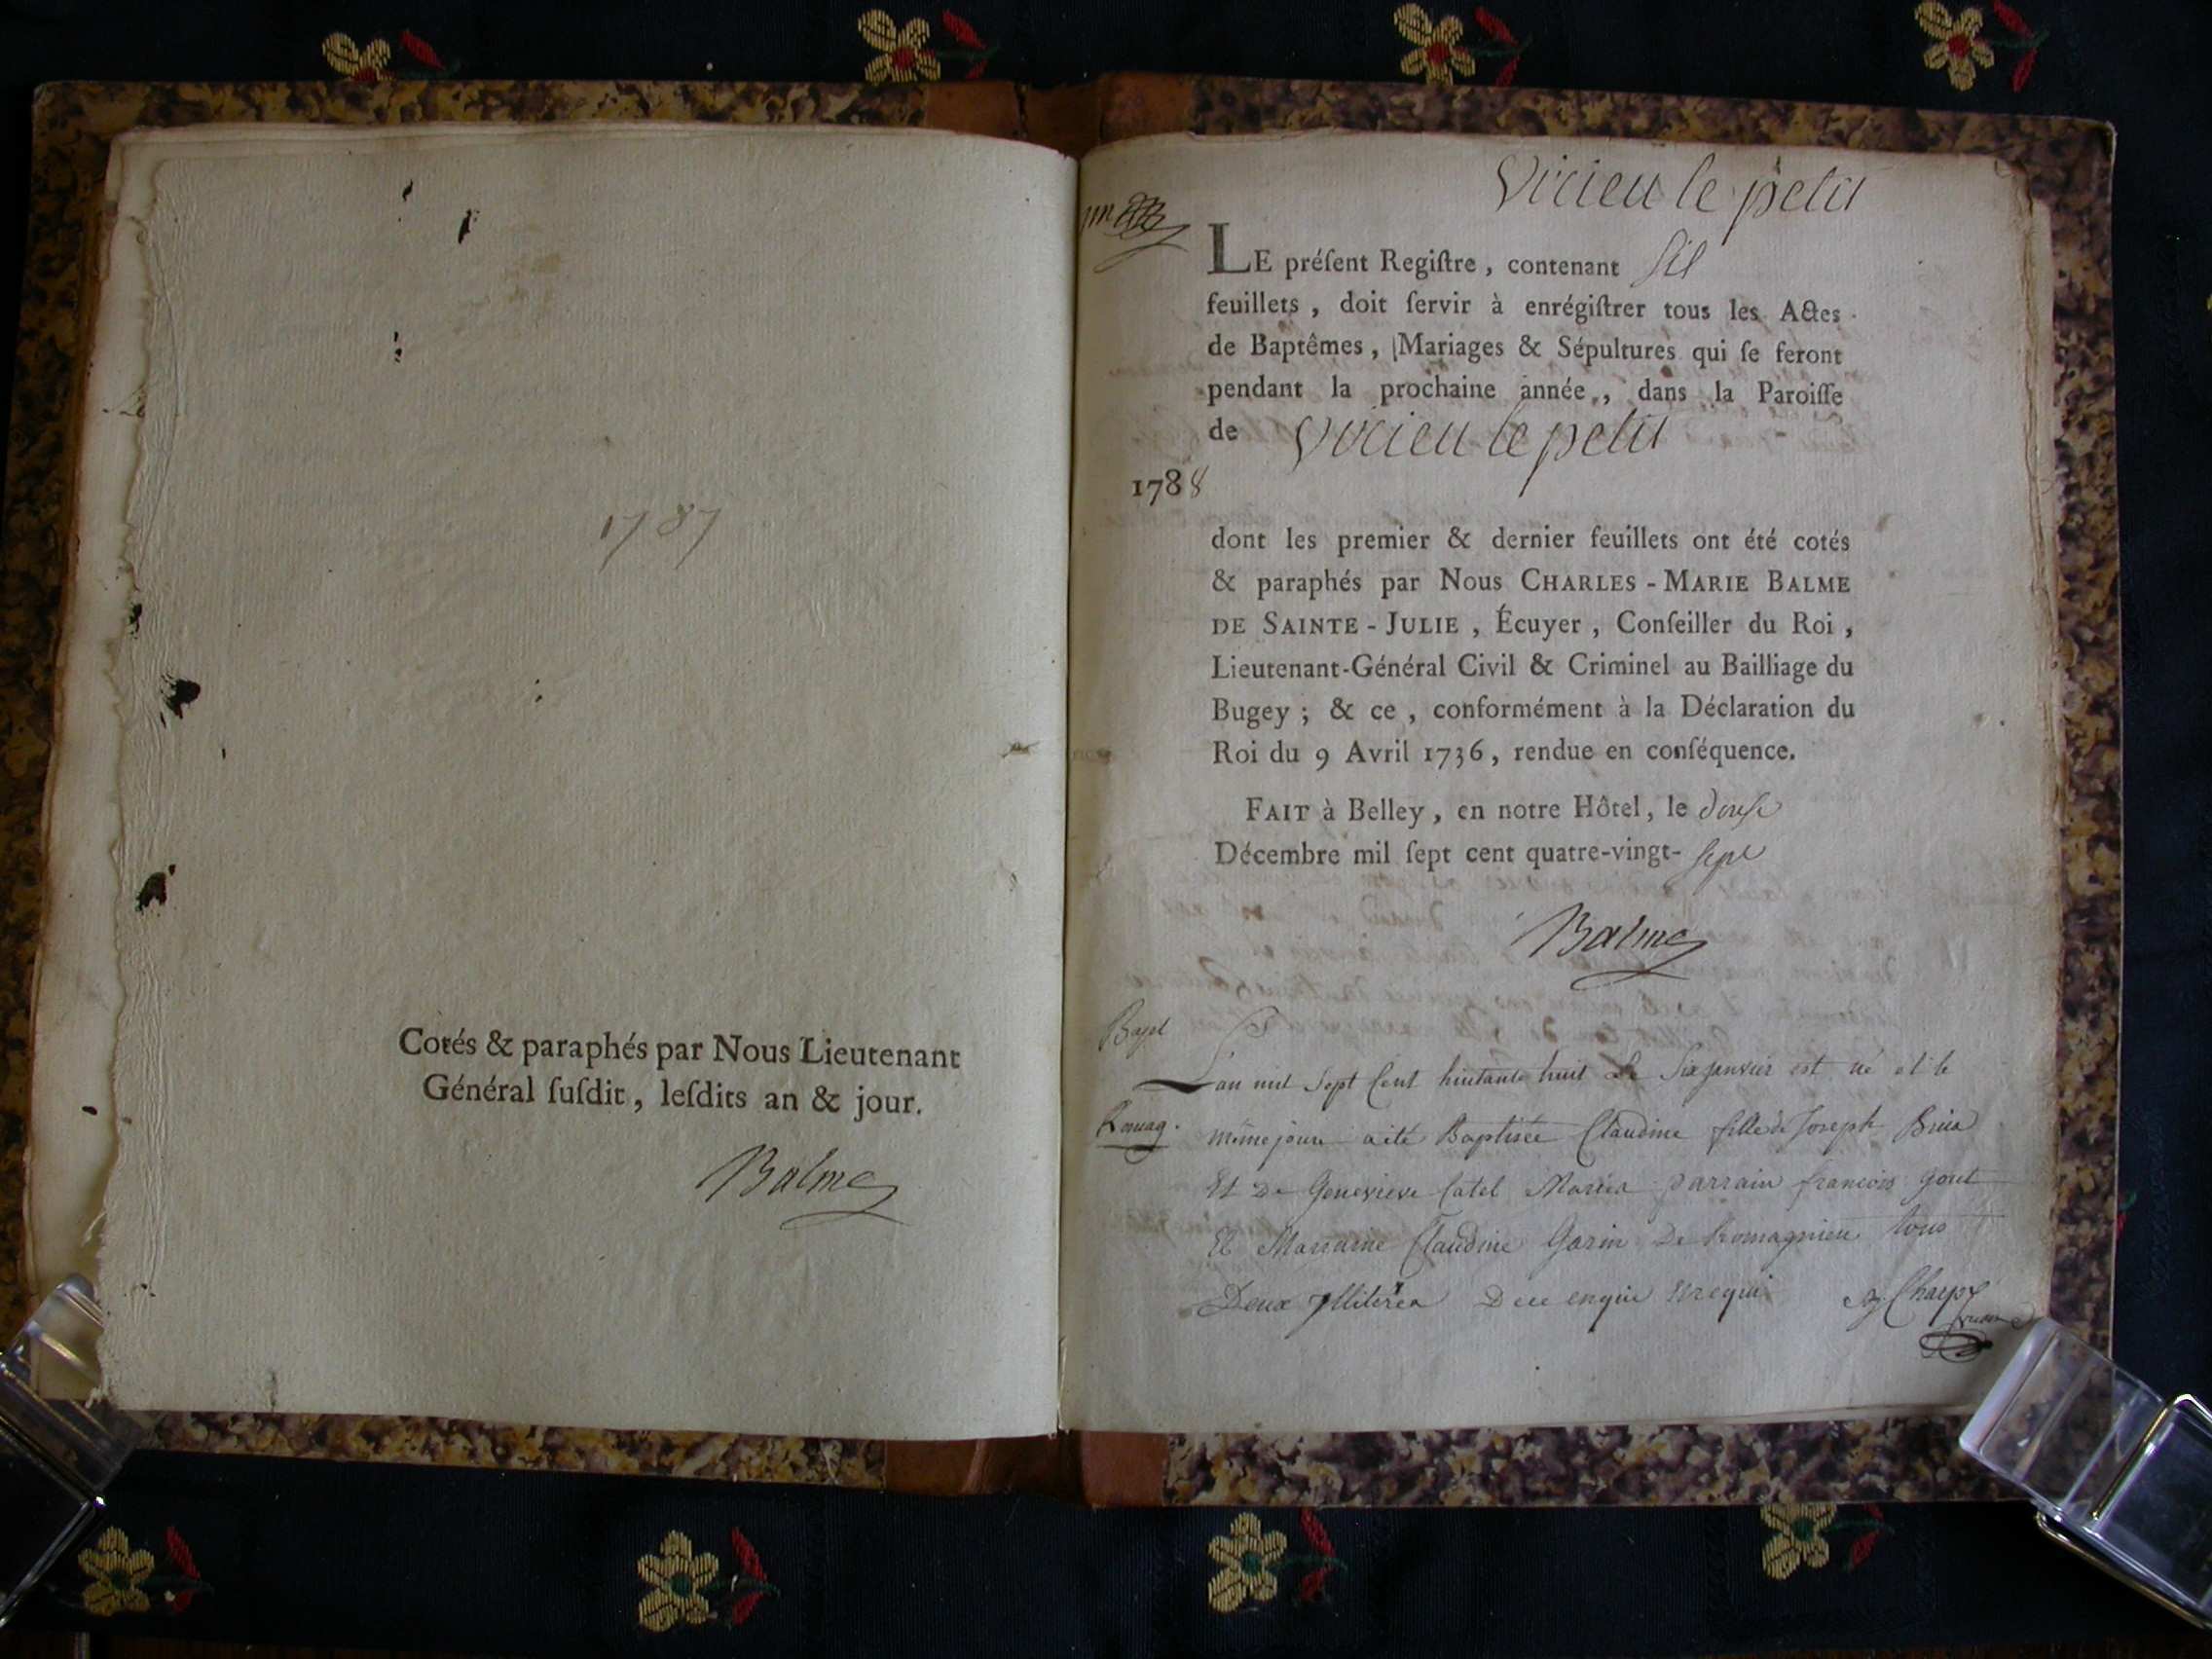 1787
Cotés & paraphés par Nous Lieutenant
Général ſuſdit, leſdits an & jour.
Balme
Virieu le petit
LE préſent Regiſtre, contenant Six
feuillets, doit ſervir à enrégiſtrer tous les Actes
de Baptêmes, Mariages & Sépultures qui ſe feront
pendant la prochaine année, dans la Paroiſſe
de Virieu le petit
1788
dont les premier & dernier feuillets ont été cotés
& paraphés par Nous CHARLES-MARIE BALME
DE SAINTE-JULIE, Écuyer, Conſeiller du Roi,
Lieutenant-Général Civil & Criminel au Bailliage du
Bugey; & ce, conformément à la Déclaration du
Roi du 9 Avril 1736, rendue en conſéquence.
FAIT à Belley, en notre Hôtel, le douſe
Décembre mil ſept cent quatre-vingt-ſept
Balme
Bapt
L'an mil Sept Cent huitante huit Le Six janvier est né et le
Romag.
même jour a été Baptisée Claudine fille de Joseph
Et De Genevieve Catel Mariés parrain francois goul
Et Marraine Claudine Garin De Romagnieu tous
Deux Illiterés De ce enquis